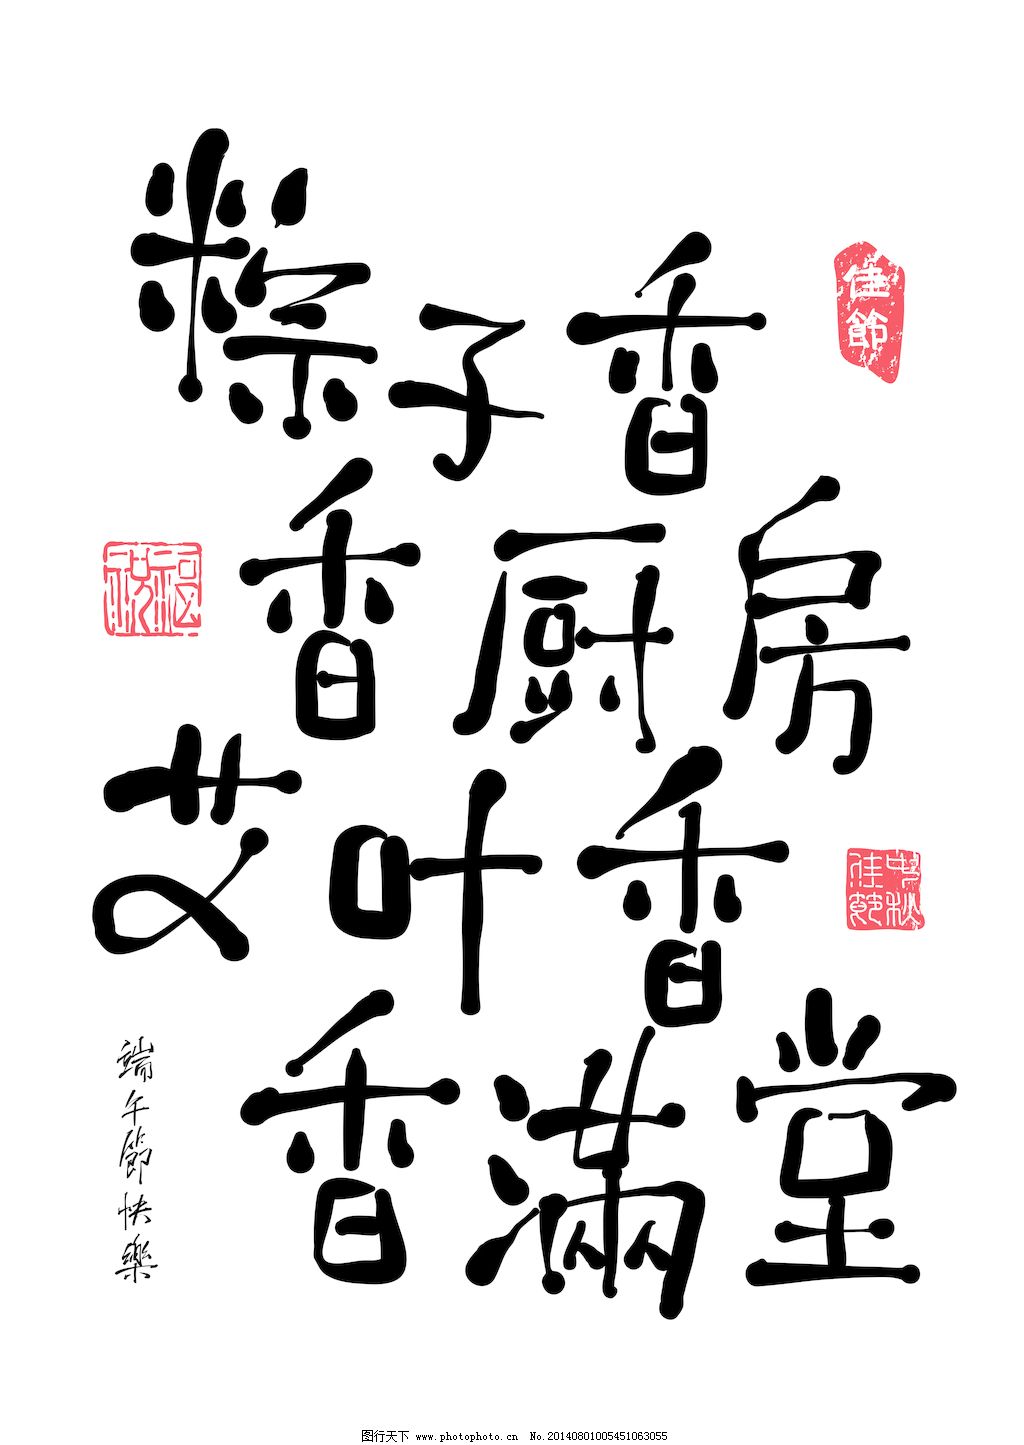 粽子香
佳節
香厨房
祝福
艾叶香
中秋佳節
香滿堂
端午節快樂
图行天下 www.photophoto.cn No.20140801005451063055